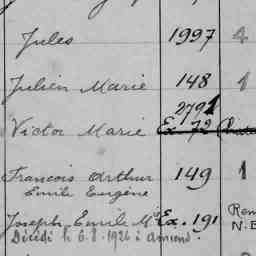 Jules 1997 4
Julien Marie 148 1
2791
Victor Marie Ex 72
François Arthur 149 1
Emile Eugène
Joseph Emile Mie Ex. 191 Rem
Décédé le 6.8.1926 à Amiens. N.E